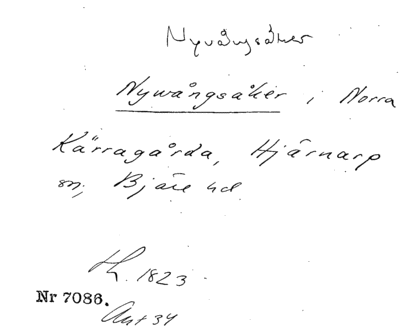 Nyvångsåker
Nywångsåker i Norra
Kärragårda, Hjärnarp
sn, Bjäre hd
Lh. 1823
Nr 7086.
Ant 34